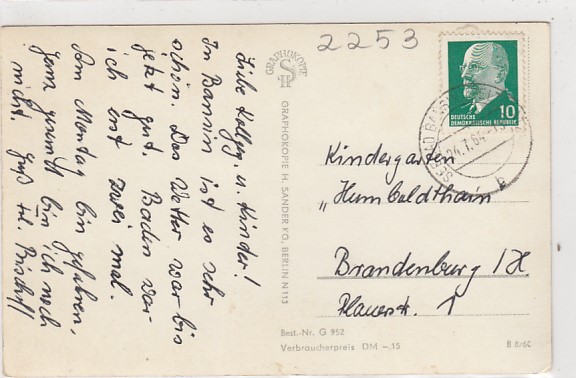 2253
Liebe Kolleg. u. Kinder!
In Bansin ist es sehr
schön. Das Wetter war bis
jetzt gut. Baden war
ich erst zwei mal.
Am Montag bin gefahren,
ganz gesund bin ich noch
nicht. Gruß Frl. Bischoff
GRAPHOKOPIE
GRAPHOKOPIE H. SANDER KG, BERLIN N 113
10
DEUTSCHE
DEMOKRATISCHE REPUBLIK
SEEBAD BANSIN
24.7.64
b
Kindergarten
„Humboldthain"
Brandenburg / H.
Plauerstr. 1
Best.-Nr. G 952
Verbraucherpreis DM –.15
B 8/60